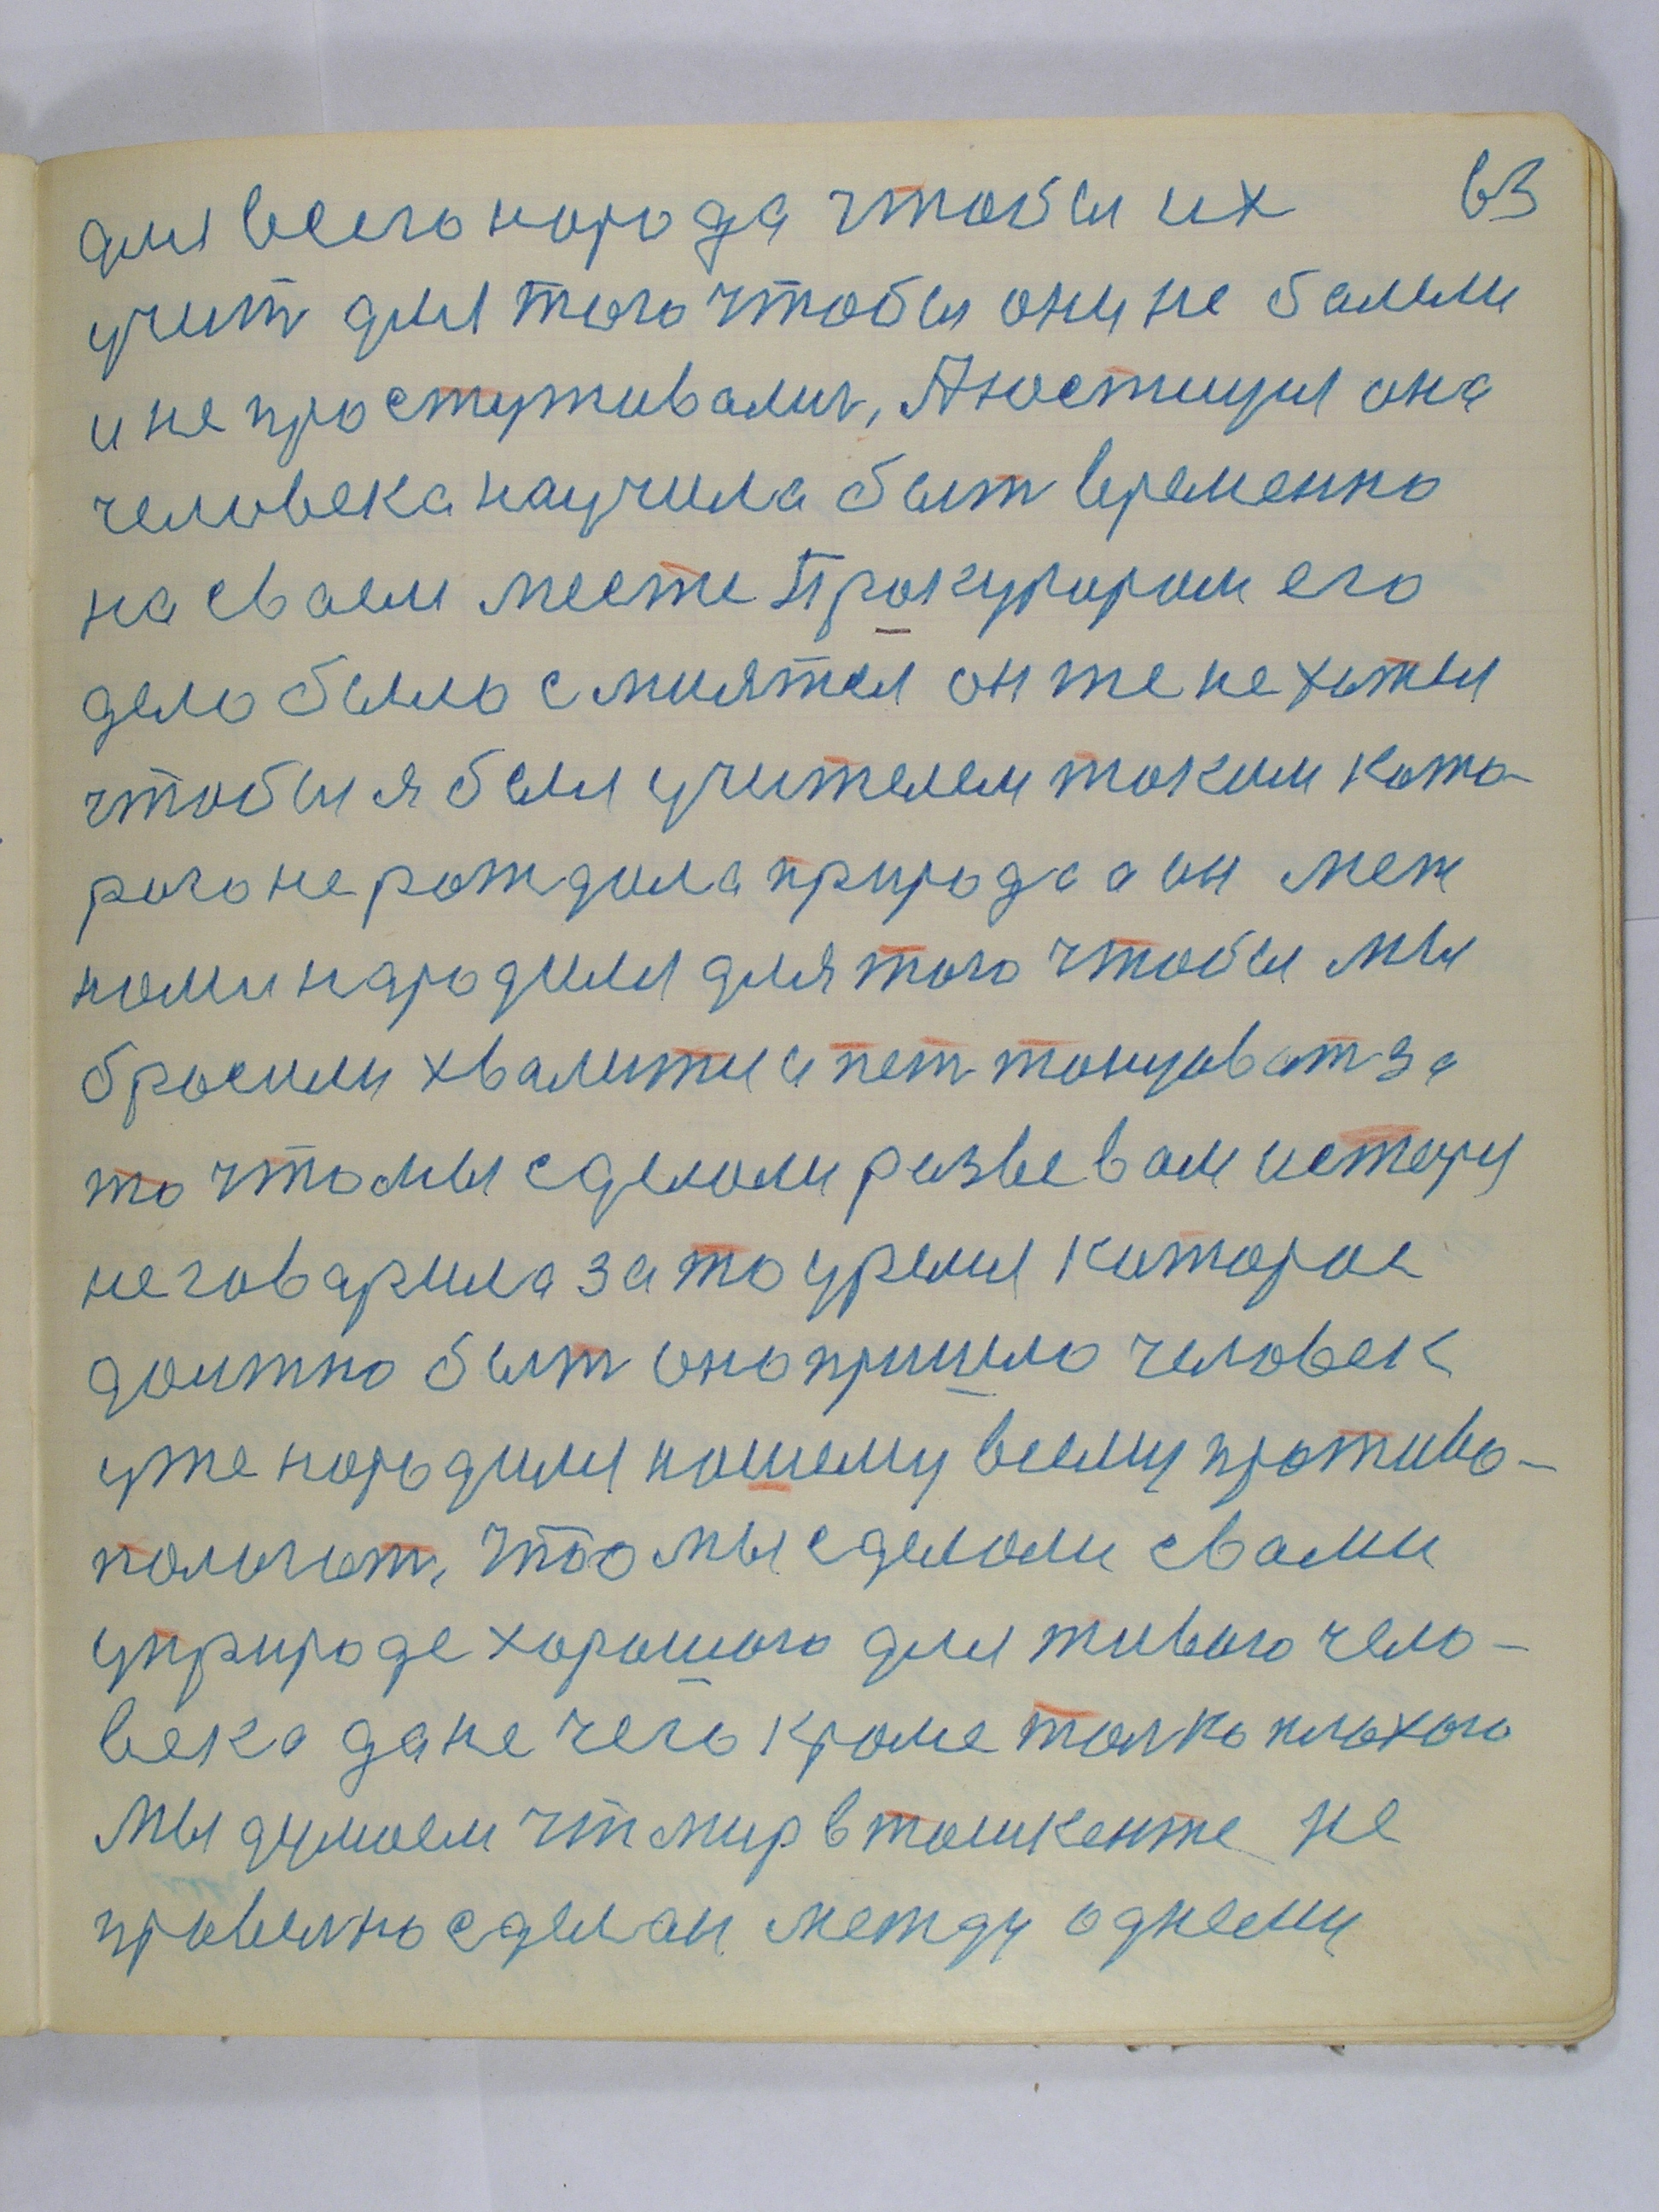 63
для всего народа чтобы их
учит для того чтобы они не балели
и не простуживалис, А юстиция она
человека научила быт временно
на сваем месте Пракурорам его
дело было смиятся он же не хотел
чтобы я был учителем таким кото-
рого не рождала природа а он меж
нами народился для того чтобы мы
бросили хвалится и пет танцоват за
то что мы сделали разве вам историу
не говарила за то уремя каторае
должно быт оно пришло человек
уже народился нашему всему противо-
паложот, Что мы сделали свами
у природе хорошого для живого чело-
века да не чего кроме толко плохого
Мы думаем что мир в ташкенте не
правелно сделан между однеми